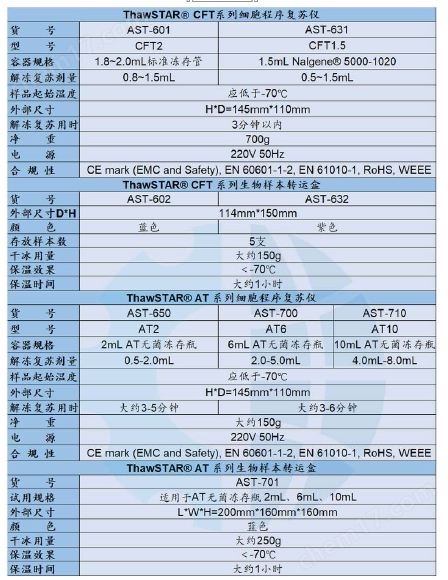 ThawSTAR® CFT系列细胞程序复苏仪
货 号 AST-601 AST-631
型 号 CFT2 CFT1.5
容器规格 1.8~2.0mL标准冻存管 1.5mL Nalgene® 5000-1020
解冻复苏剂量 0.8~1.5mL 0.5~1.5mL
样品起始温度 应低于-70℃
外部尺寸 H*D=145mm*110mm
解冻复苏用时 3分钟以内
净 重 700g
电 源 220V 50Hz
合 规 性 CE mark (EMC and Safety), EN 60601-1-2, EN 61010-1, RoHS, WEEE
ThawSTAR® CFT系列生物样本转运盒
货 号 AST-602 AST-632
外部尺寸D*H 114mm*150mm
颜 色 蓝色 紫色
存放样本数 5支
干冰用量 大约150g
保温效果 <-70℃
保温时间 大约1小时
ThawSTAR® AT 系列细胞程序复苏仪
货 号 AST-650 AST-700 AST-710
型 号 AT2 AT6 AT10
容器规格 2mL AT无菌冻存瓶 6mL AT无菌冻存瓶 10mL AT无菌冻存瓶
解冻复苏剂量 0.5-2.0mL 2.0-5.0mL 4.0mL-8.0mL
样品起始温度 应低于-70℃
外部尺寸 H*D=145mm*110mm
解冻复苏用时 大约3-5分钟 大约3-6分钟
净 重 大约150g
电 源 220V 50Hz
合 规 性 CE mark (EMC and Safety), EN 60601-1-2, EN 61010-1, RoHS, WEEE
ThawSTAR® AT 系列生物样本转运盒
货 号 AST-701
试用规格 适用于AT无菌冻存瓶 2mL、6mL、10mL
外部尺寸 L*W*H=200mm*160mm*160mm
颜 色 蓝色
干冰用量 大约250g
保温效果 <-70℃
保温时间 大约1小时